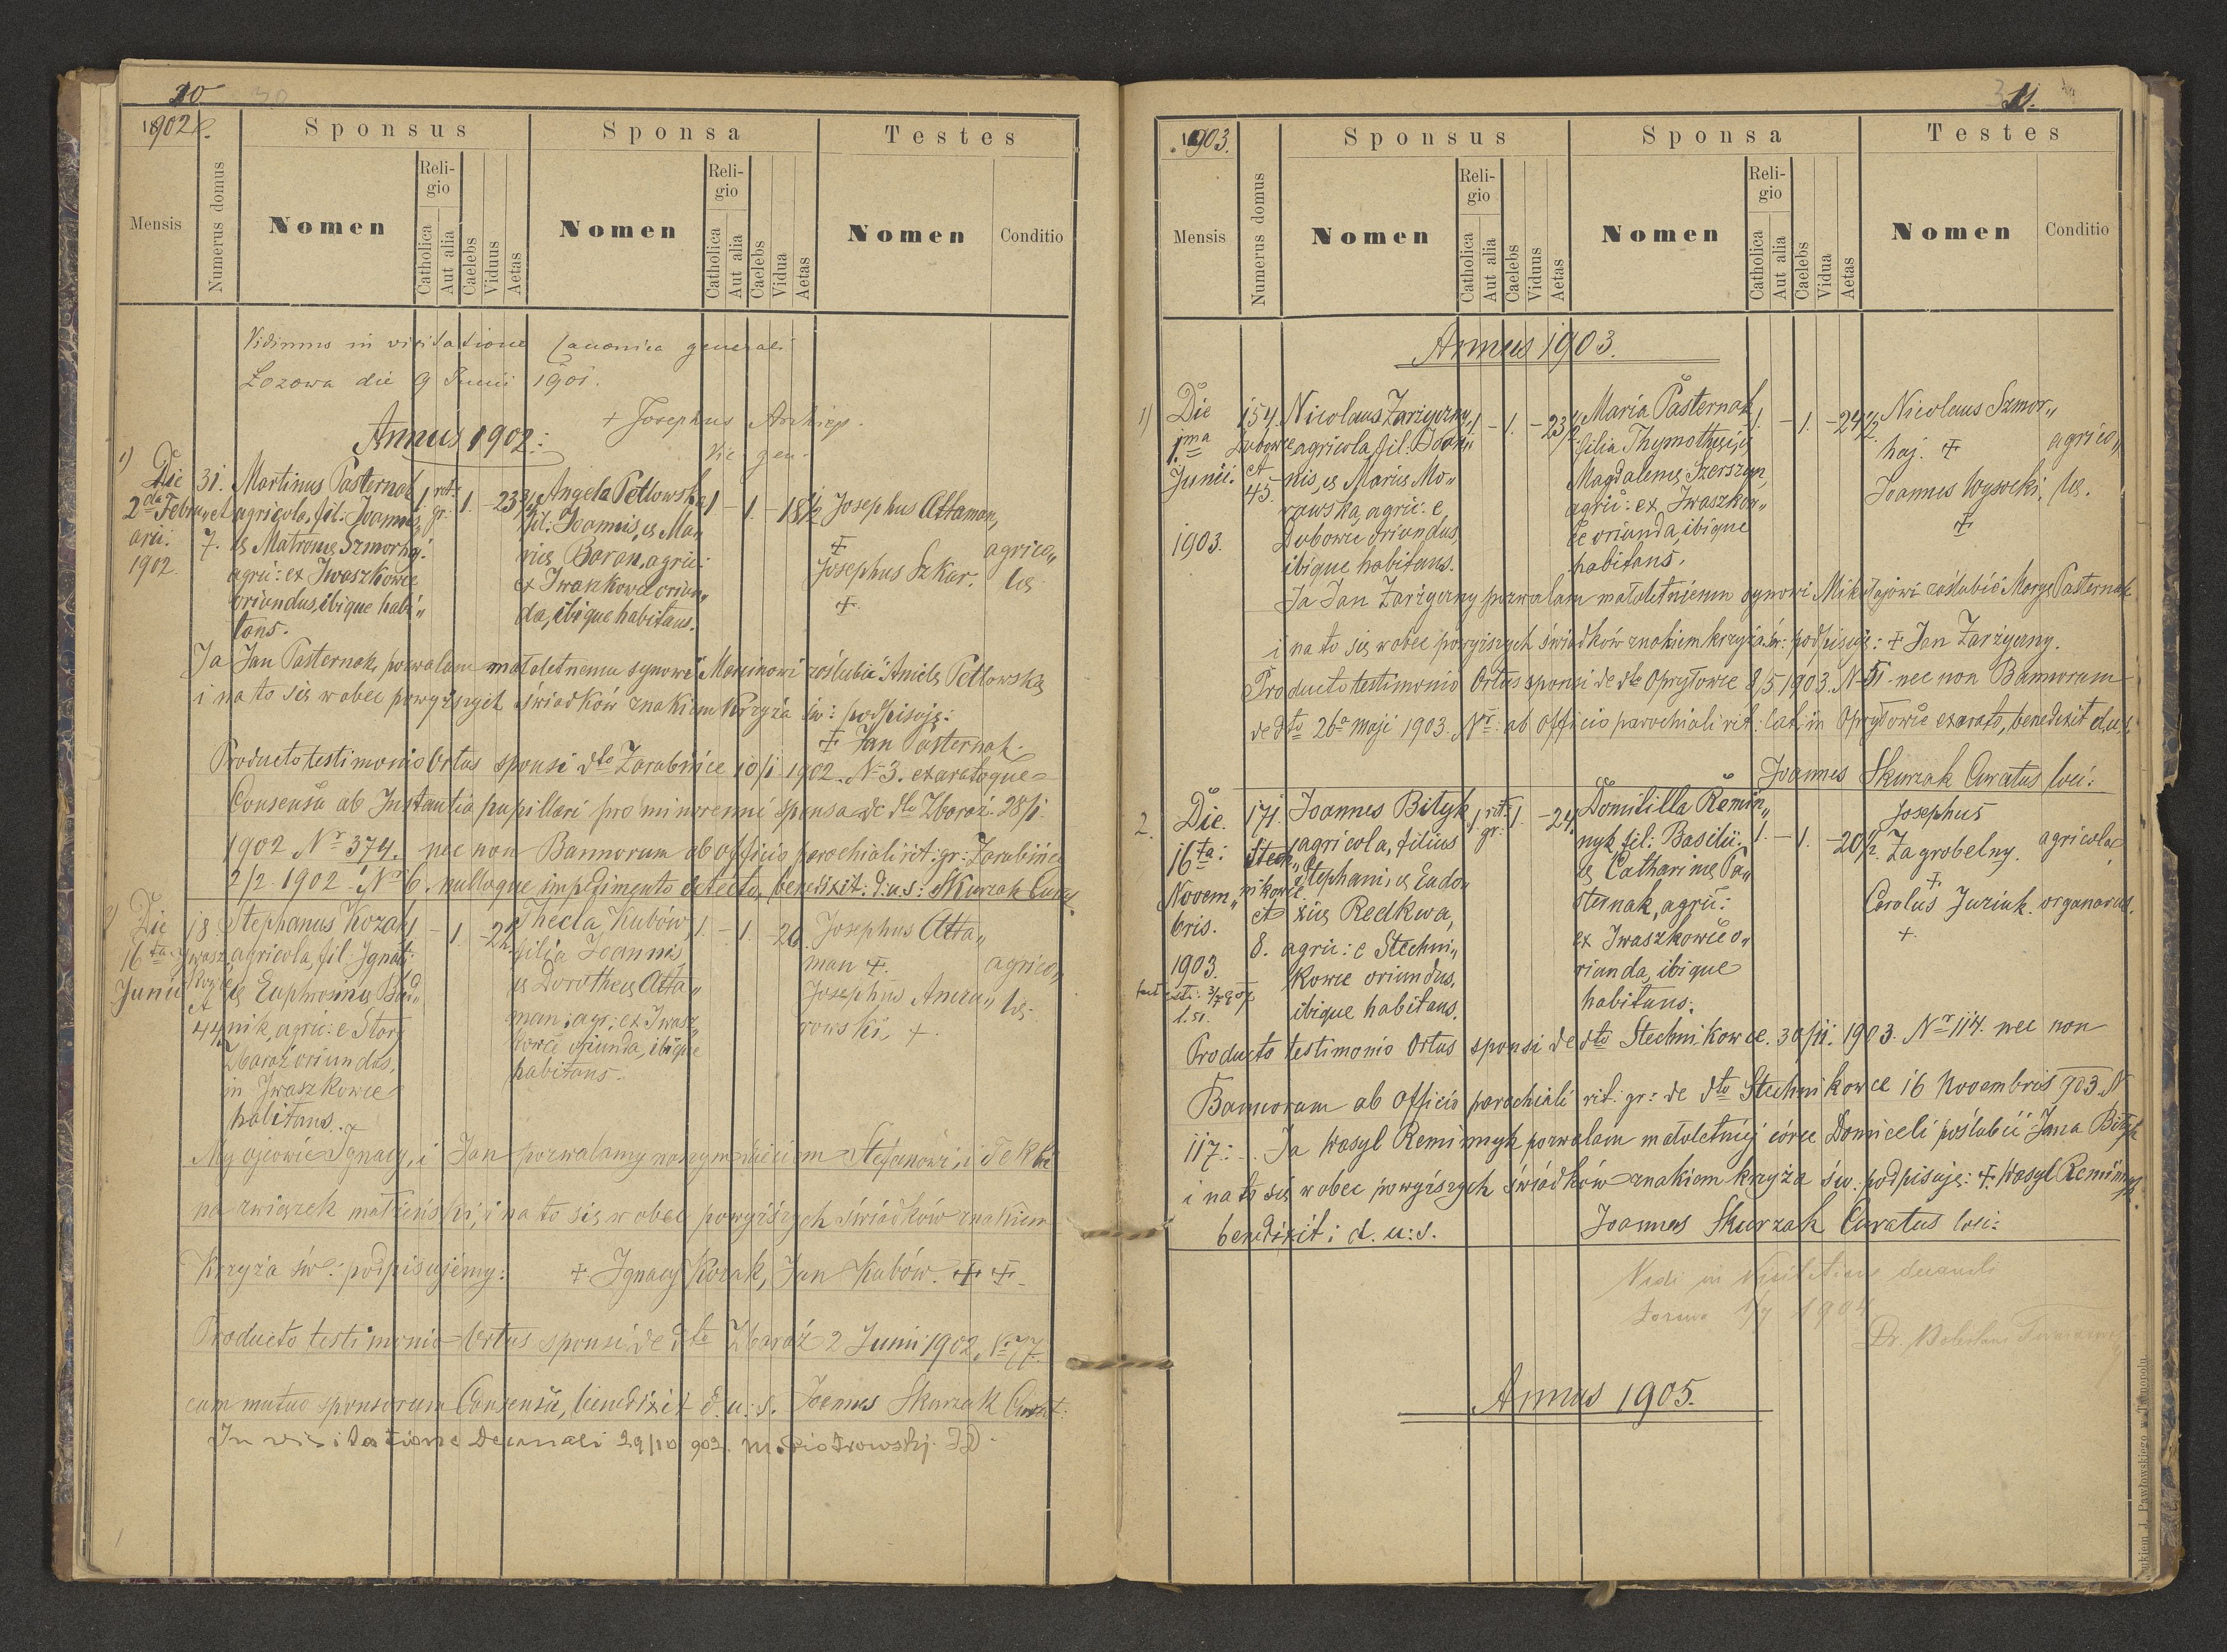 10
30
1902.
Sponsus
Sponsa
Testes
Mensis
Numerus domus
Nomen
Reli-
gio
Catholica
Aut alia
Caelebs
Viduus
Aetas
Nomen
Reli-
gio
Catholica
Aut alia
Caelebs
Vidua
Aetas
Nomen
Conditio
Vidimus in visitatione canonica generali
Łozowa die 9 Junii 1901.
+ Josephus Archiep.
Annus 1902:
1)
Die
2da Febru
arii.
1902.
31.
et
7.
Martinus Pasternak
agricola, fil: Joannis,
et Matronę Szmorhaj.
agric: ex Iwaszkowce
oriundus, ibique habi„
tans.
1 rit:
gr:
1.
- 23 3/4
Angela Petlowska
fil: Joannis, et Ma„
rię Baran, agric:
ex Iwaszkowce oriun„
da, ibique habitans.
1
-
1.
- 18 1/2
Josephus Attaman,
+
Josephus Szkar.
+
agrico„
lę
Ja Jan Pasternak, pozwalam małoletnemu synowi Marcinowi zaślubić Anielę Petlowską
i na to się wobec powyższych świadków znakiem Krzyża św: podpisuję:
+ Jan Pasternak.
Producto testimonio Ortus sponsi dto Zarubińce 10/1 1902. No 3. exaratoque
Consensu ab Instantia pupillari pro minorenni sponsa de dto Zbaraż. 28/1.
1902 Nr 374. nec non Bannorum ab officio parochiali rit: gr: Zarubińce
2/2. 1902 Nr 6. nulloque impedimento detecto, benedixit: d.u.s: Skurzak Curat.
2)
Die
16ta
Junii
18
Iwasz
kowce
et
44
Stephanus Kozak
agricola, fil: Ignatii
et Euphrosinę Bud„
nik, agric: e Stary
Zbaraż oriundus,
in Iwaszkowce
habitans.
1
-
1.
- 21
Thecla Kubów,
filia Joannis
et Dorotheę Atta„
man, agr: ex Iwasz„
kowce oriunda, ibique
habitans.
1.
-
1.
- 20.
Josephus Atta„
man +.
Josephus
rowski, +.
agrico„
lę.
My ojcowie Ignacy, i Jan pozwalamy naszym dzieciom Stefanowi, i Tekli
na związek małżeński, i na to się wobec powyższych świadków znakiem
Krzyża św: podpisujemy: + Ignacy Kozak, Jan Kubów. + +.
Producto testimonio Ortus sponsi de dto Zbaraż 2 Junii 1902, No 77.
cum mutuo sponsorum Consensu, benedixit d. u: s. Joannes Skurzak Curat:
In visitatione Decanali 29/10 902. M. Piotrowski. JD
11.
1903.
Sponsus
Sponsa
Testes
Mensis
Numerus domus
Nomen
Reli-
gio
Catholica
Aut alia
Caelebs
Viduus
Aetas
Nomen
Reli-
gio
Catholica
Aut alia
Caelebs
Vidua
Aetas
Nomen
Conditio
Annus 1903.
1)
Die
1.ma
Junii.
1903.
154.
Dubowce
et
45.
Nicolaus Zarżyczny
agricola, fil: Joan„
nis, et Marię Mo„
rawska, agric: e
Dubowce oriundus,
ibique habitans.
1
-
1.
- 23 1/2
Maria Pasternak
filia Thymothei, et
Magdalenę Szerszun,
agric: ex Iwaszkow„
ce oriunda, ibique
habitans.
1
-
1.
- 24 1/2
Nicolaus Szmor„
haj. +
Joannes Wysocki,
+
agrico„
lę.
Ja Jan Zarżyczny pozwalam małoletniemu synowi Mikołajowi zaślubić Maryę Pasternak
i na to się wobec powyższych świadków znakiem krzyża św: podpisuję: + Jan Zarżyczny.
Producto testimonio Ortus sponsi de dto Opryłowce 8/5 1903. N 51. nec non Bannorum
de dto 26a maji 1903. Nr: ab officio parochiali rit: lat: in Opryłowce exarato, benedixit d.u.s.
Joannes Skurzak Curatus loci.
2.
Die.
16ta:
Novem„
bris.
1903.
171.
Stech„
nikowce
et
8.
Joannes Bityk
agricola, filius
Stephani, et Eudo„
xię Redkwa,
agric: e Stechni„
kowce oriundus,
ibique habitans.
1 rit:
gr:
1.
- 24.
Domitilla Remin„
nyk, fil: Basilii.
et Catharinę Pa„
sternak, agric:
ex Iwaszkowce o„
riunda, ibique
habitans.
1.
-
1.
- 20 1/2.
Josephus
Zagrobelny.
+
Carolus Juziuk.
+.
agricola
organarius.
Producto testimonio Ortus sponsi de dto Stechnikowce. 30/11. 1903. Nr 114. nec non
Bannorum ab Officio parochiali rit. gr: de dto Stechnikowce 16 Novembris 903 N
117: Ja Wasyl Reminnyk pozwalam małoletniej córce Domiceli poślubić Jana Bityk
i na to się wobec powyższych świadków znakiem krzyża św. podpisuję: + Wasyl Reminnyk.
benedixit: d. u: s. Joannes Skurzak Curatus loci:
Vidi in visitatione decanali
Łozowa 1904
Annus 1905.
Drukiem J. Pawłowskiego w Tarnopolu.